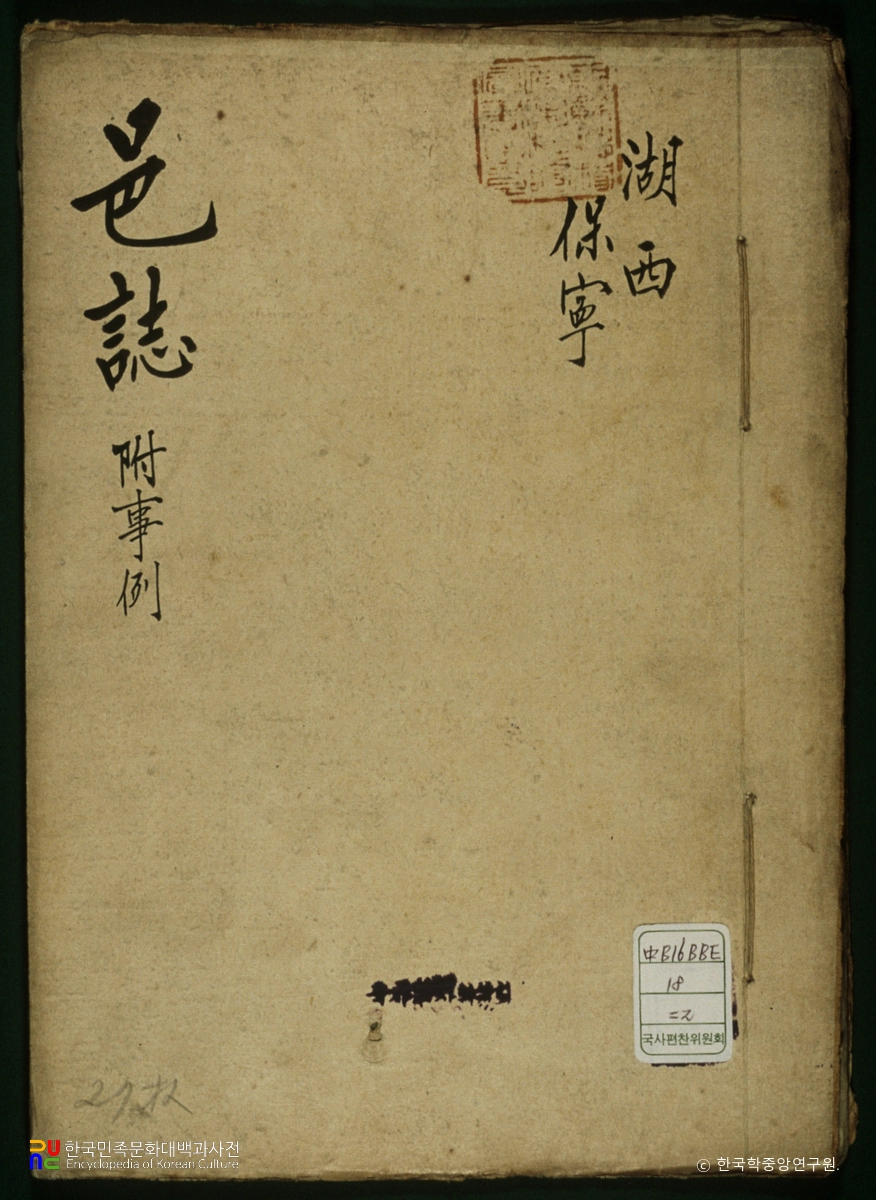 湖西
保寧
邑誌 附事例
中B16BBE
18
=2
국사편찬위원회
한국민족문화대백과사전
Encyclopedia of Korean Culture
© 한국학중앙연구원.